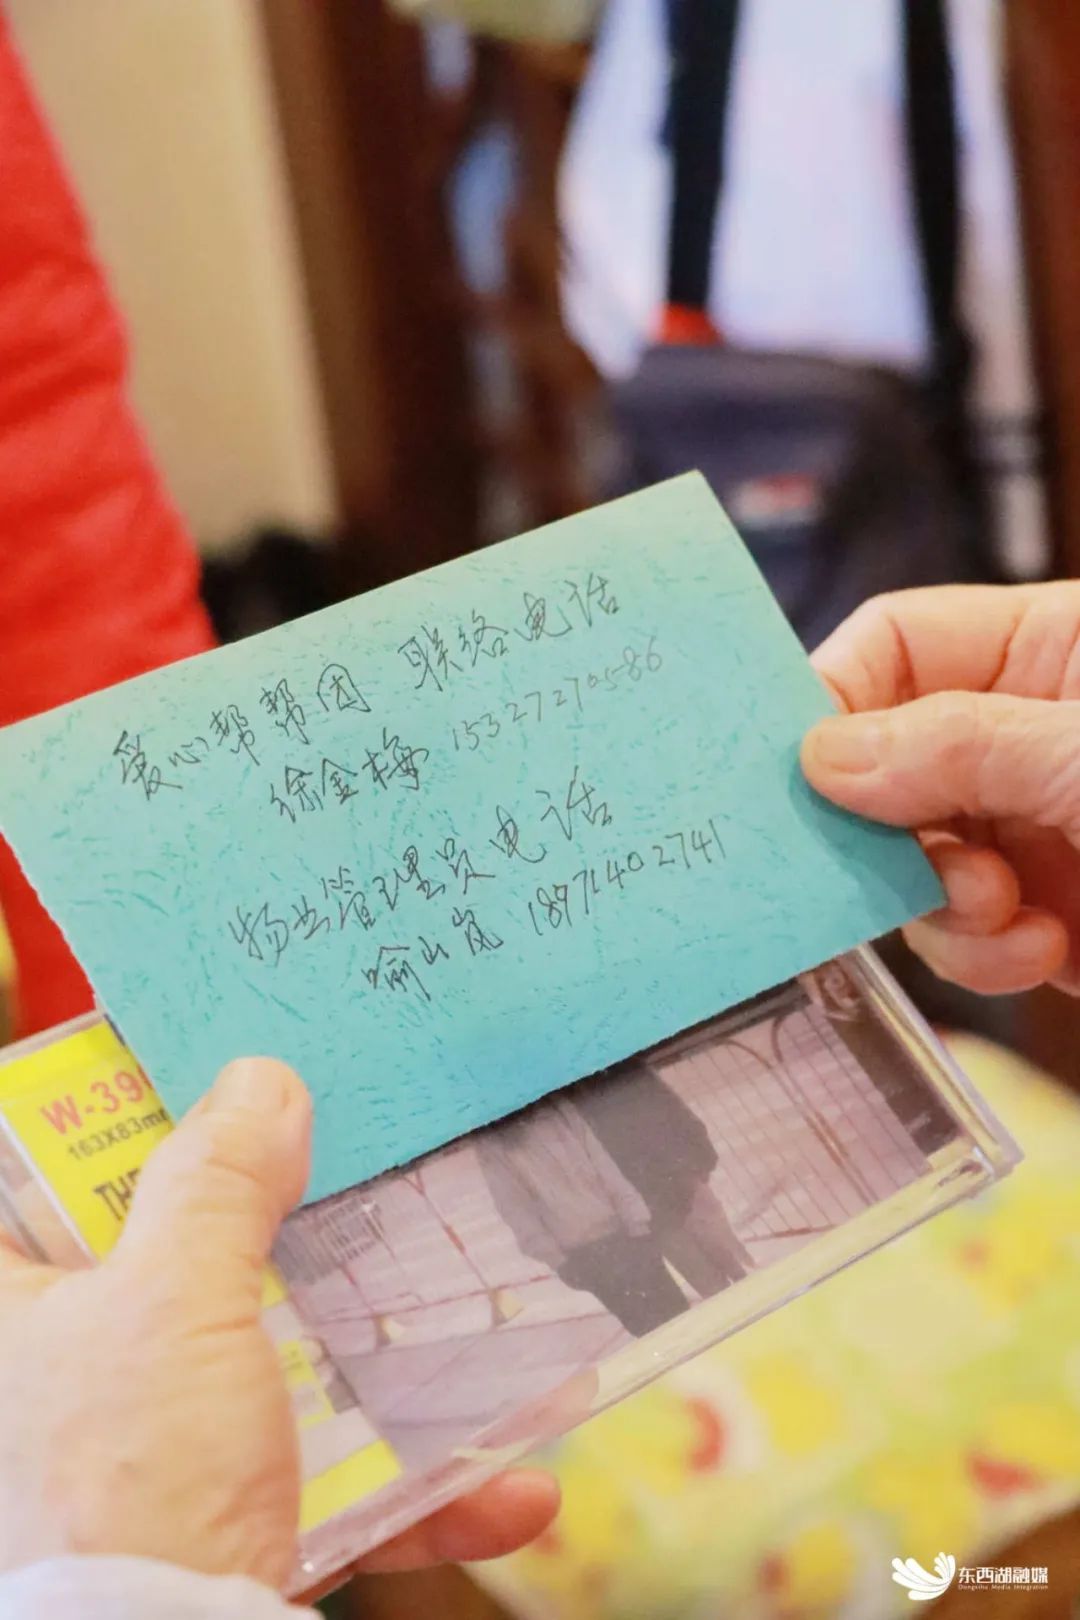 爱心帮帮团 联络电话
徐金梅 15327270586
物业管理员电话
喻山岚 18971402741
W-39
163X83m
THE
东西湖融媒
Dongxihu Media Integration